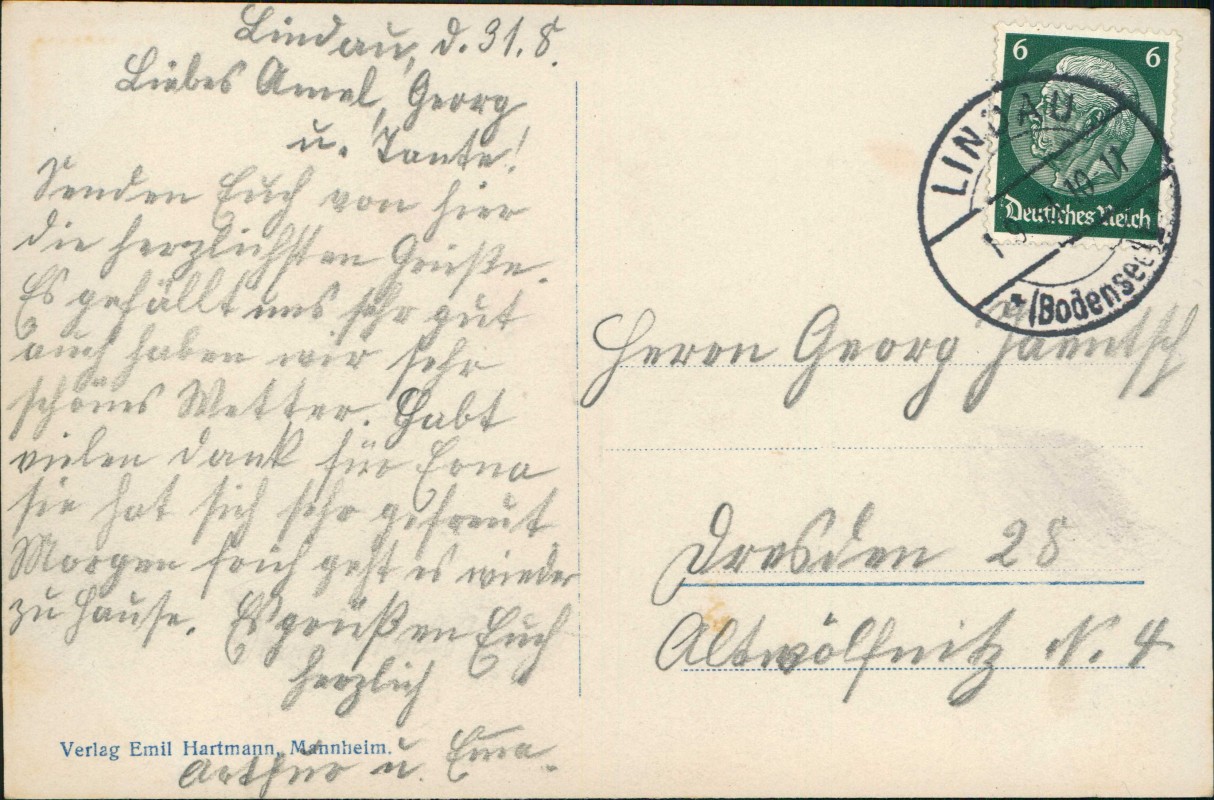 Lindau, d. 31.8.
Liebes Amel, Georg
u. Tante!
Senden Euch von hier
die herzlichsten Grüße.
Es gefällt uns sehr gut
auch haben wir sehr
schönes Wetter. Habt
vielen Dank für Erna
sie hat sich sehr gefreut
Morgen früh geht es wieder
zu Hause. Es grüßen Euch
herzlich
Arthur u. Erna.
Verlag Emil Hartmann, Mannheim.
6 6
Deutsches Reich
LINDAU
(Bodensee)
Herrn Georg
Dresden 28
Altwölfnitz N. 4